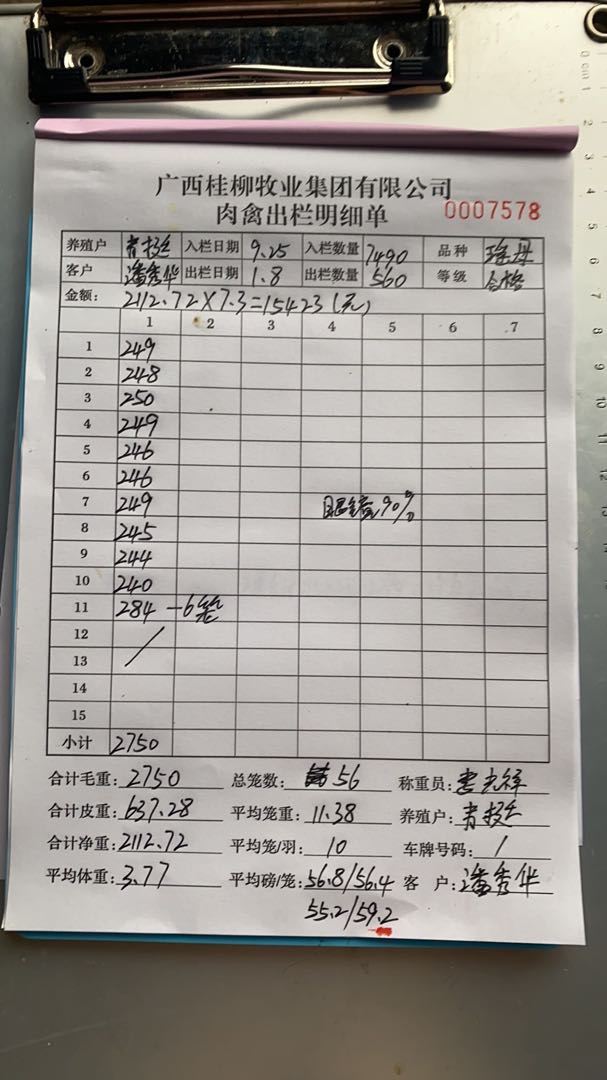 广西桂柳牧业集团有限公司
肉禽出栏明细单 0007578
养殖户 入栏日期 9.25 入栏数量 7490 品种
客户 潘秀华 出栏日期 1.8 出栏数量 560 等级 合格
金额: 2112.72×7.3=15423(元)
1 2 3 4 5 6 7
1 249
2 248
3 250
4 249
5 246
6 246
7 249 90%
8 245
9 244
10 240
11 284 -6笼
12
13
14
15
小计 2750
合计毛重: 2750 总笼数: 56 称重员:
合计皮重: 637.28 平均笼重: 11.38 养殖户:
合计净重: 2112.72 平均笼/羽: 10 车牌号码: /
平均体重: 3.77 平均磅/笼: 56.8/56.4 客 户: 潘秀华
55.2/59.2